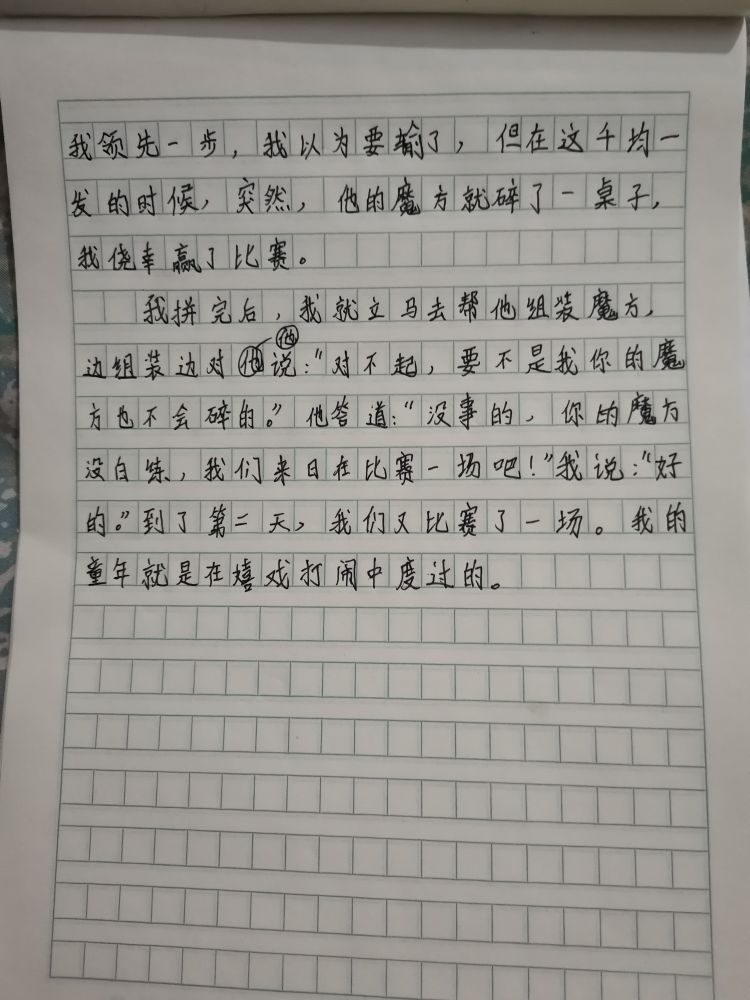 我领先一步，我以为要输了，但在这千均一
发的时候，突然，他的魔方就碎了一桌子，
我侥幸赢了比赛。
我拼完后，我就立马去帮他组装魔方，
边组装边对他说：“对不起，要不是我你的魔
方也不会碎的。”他答道：“没事的，你的魔方
没白练，我们来日在比赛一场吧！”我说：“好
的。”到了第二天，我们又比赛了一场。我的
童年就是在嬉戏打闹中度过的。